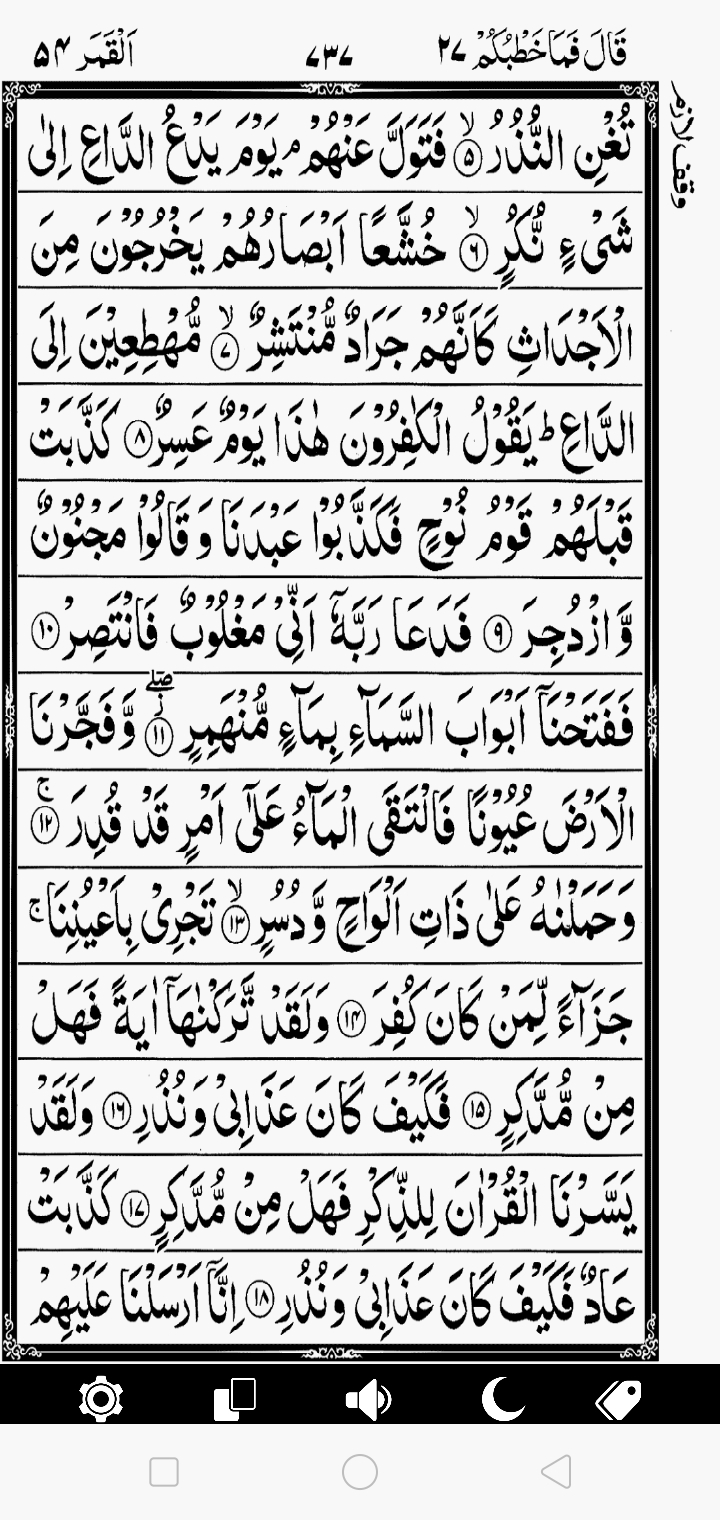 قَالَ فَمَا خَطْبُكُمْ ۲۷ ۷۳۷ اَلْقَمَر ۵۴
وقف لازم
تُغْنِ النُّذُرُ ۙ﴿۵﴾ فَتَوَلَّ عَنْهُمْ ۘ يَوْمَ يَدْعُ الدَّاعِ اِلٰى
شَىْءٍ نُّكُرٍ ۙ﴿۶﴾ خُشَّعًا اَبْصَارُهُمْ يَخْرُجُوْنَ مِنَ
الْاَجْدَاثِ كَاَنَّهُمْ جَرَادٌ مُّنْتَشِرٌ ۙ﴿۷﴾ مُّهْطِعِيْنَ اِلَى
الدَّاعِ ؕ يَقُوْلُ الْكٰفِرُوْنَ هٰذَا يَوْمٌ عَسِرٌ ﴿۸﴾ كَذَّبَتْ
قَبْلَهُمْ قَوْمُ نُوْحٍ فَكَذَّبُوْا عَبْدَنَا وَ قَالُوْا مَجْنُوْنٌ
وَّ ازْدُجِرَ ﴿۹﴾ فَدَعَا رَبَّهٗۤ اَنِّىْ مَغْلُوْبٌ فَانْتَصِرْ ﴿۱۰﴾
فَفَتَحْنَاۤ اَبْوَابَ السَّمَآءِ بِمَآءٍ مُّنْهَمِرٍ ۖ﴿۱۱﴾ وَّ فَجَّرْنَا
الْاَرْضَ عُيُوْنًا فَالْتَقَى الْمَآءُ عَلٰٓى اَمْرٍ قَدْ قُدِرَ ۚ﴿۱۲﴾
وَ حَمَلْنٰهُ عَلٰى ذَاتِ اَلْوَاحٍ وَّ دُسُرٍ ۙ﴿۱۳﴾ تَجْرِىْ بِاَعْيُنِنَا ۚ
جَزَآءً لِّمَنْ كَانَ كُفِرَ ﴿۱۴﴾ وَلَقَدْ تَّرَكْنٰهَاۤ اٰيَةً فَهَلْ
مِنْ مُّدَّكِرٍ ﴿۱۵﴾ فَكَيْفَ كَانَ عَذَابِىْ وَ نُذُرِ ﴿۱۶﴾ وَلَقَدْ
يَسَّرْنَا الْقُرْاٰنَ لِلذِّكْرِ فَهَلْ مِنْ مُّدَّكِرٍ ﴿۱۷﴾ كَذَّبَتْ
عَادٌ فَكَيْفَ كَانَ عَذَابِىْ وَ نُذُرِ ﴿۱۸﴾ اِنَّاۤ اَرْسَلْنَا عَلَيْهِمْ